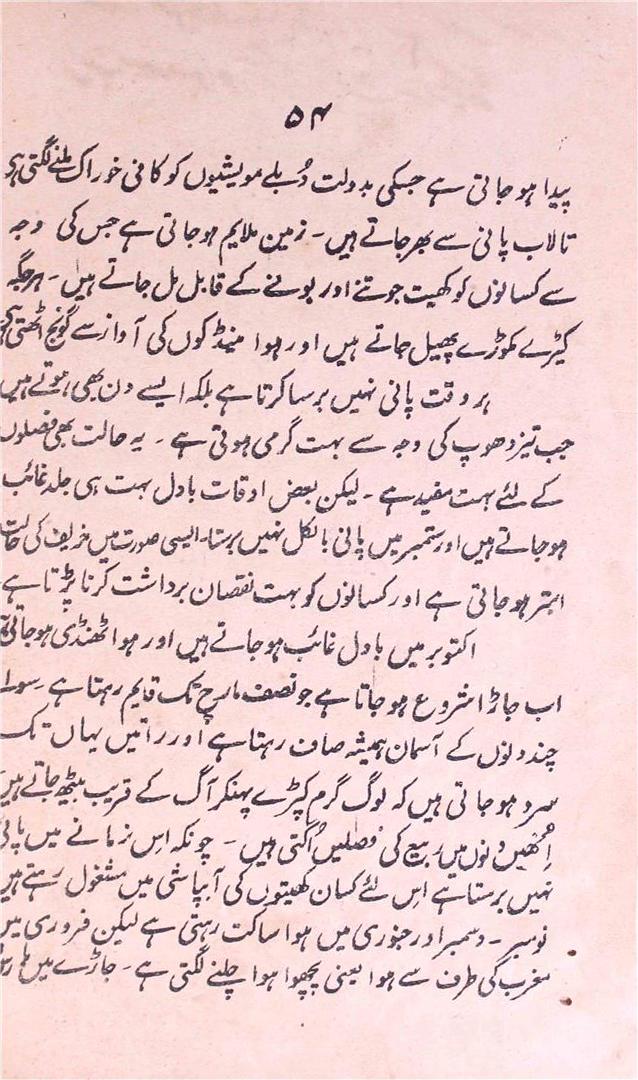 ۵۴
پیدا ہوجاتی ہے جسکی بدولت دُبلے مویشیوں کو کافی خوراک ملنے لگتی ہی
تالاب پانی سے بھر جاتے ہیں ۔ زمین ملایم ہوجاتی ہے جس کی وجہ
سے کسانوں کو کھیت جوتنے اور بونے کے قابل مل جاتے ہیں ۔ ہرجگہ
کیڑے مکوڑے پھیل جاتے ہیں اور ہوا مینڈکوں کی آواز سے گونج اٹھتی ہی
ہر وقت پانی نہیں برسا کرتا ہے بلکہ ایسے دن بھی ہوتے ہیں
جب تیز دھوپ کی وجہ سے بہت گرمی ہوتی ہے ۔ یہ حالت بھی فصلوں
کے لئے بہت مفید ہے ۔ لیکن بعض اوقات بادل بہت ہی جلد غائب
ہوجاتے ہیں اور ستمبر میں پانی بالکل نہیں برستا ۔ ایسی صورت میں خریف کی حالت
ابتر ہوجاتی ہے اور کسانوں کو بہت نقصان برداشت کرنا پڑتا ہے
اکتوبر میں بادل غائب ہوجاتے ہیں اور ہوا ٹھنڈی ہوجاتی
اب جاڑا شروع ہوجاتا ہے جو نصف مارچ تک قایم رہتا ہے ۔ سوا
چند دنوں کے آسمان ہمیشہ صاف رہتا ہے اور راتیں یہاں تک
سرد ہوجاتی ہیں کہ لوگ گرم کپڑے پہنکر آگ کے قریب بیٹھ جاتے ہیں
اِنھیں دنوں میں ربیع کی فصلیں اُگتی ہیں ۔ چونکہ اس زمانے میں پانی
نہیں برستا ہے اِس لئے کسان کھیتوں کی آبپاشی میں مشغول رہتے ہیں
نومبر ۔ دسمبر اور جنوری میں ہوا ساکت رہتی ہے لیکن فروری میں
مغرب کی طرف سے ہوا یعنی پچھوا ہوا چلنے لگتی ہے ۔ جاڑے میں